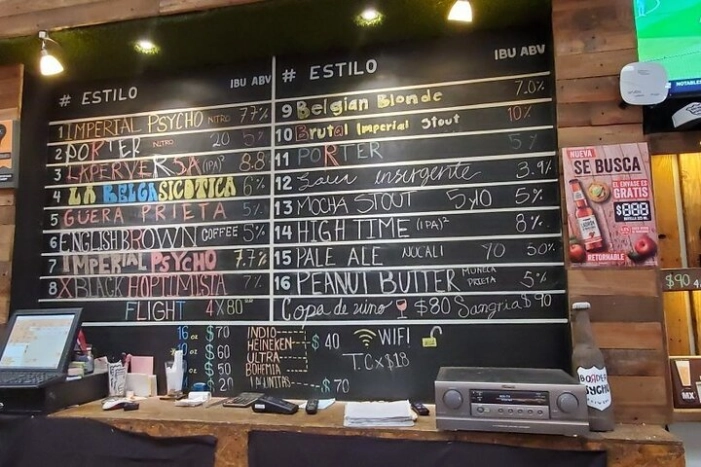 # ESTILO IBU ABV
1 IMPERIAL PSYCHO NITRO 7.7%
2 PORTER NITRO 20 5%
3 LXPERVERSA (IPA)² 8.8
4 LA BELGASICOTICA 6%
5 GÜERA PRIETA 5%
6 ENGLISH BROWN COFFEE 5%
7 IMPERIAL PSYCHO 7.7%
8 XBLACK HOPTIMISTA 7%
FLIGHT 4X80
# ESTILO IBU ABV
9 Belgian Blonde 7.0%
10 Brutal Imperial Stout 10%
11 PORTER 5%
12 Saliu insurgente 3.9%
13 MOCHA STOUT 5%
14 HIGH TIME (IPA)² 8%
15 PALE ALE NOCALI 50%
16 PEANUT BUTTER MUÑECA PRIETA 5%
Copa de vino $80 Sangria $90
16 oz $70
$60
$50
$20
INDIO
HEINEKEN
ULTRA
BOHEMIA
LAGUNITAS
$40
$70
WIFI
T.C x $18
NUEVA
SE BUSCA
EL ENVASE ES
GRATIS
$
RETORNABLE
$90
BORDER
PSYCHO
MX